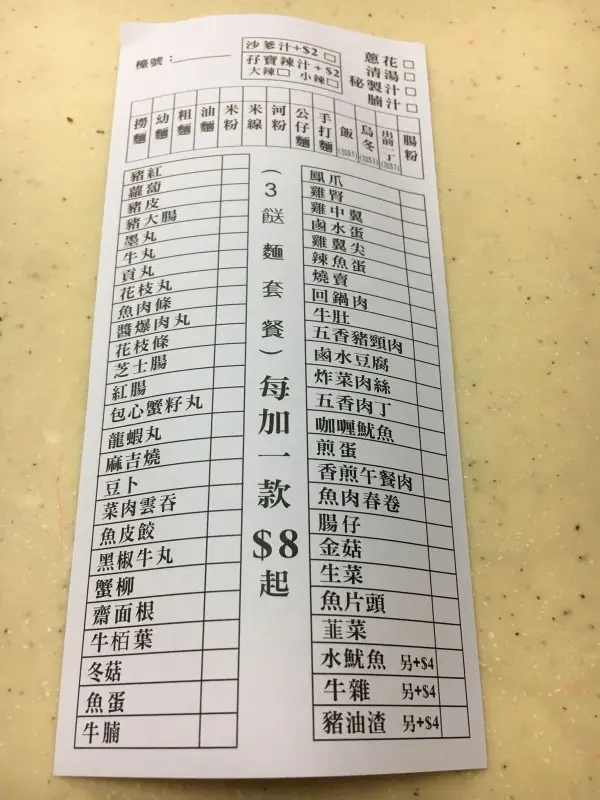 檯號：
沙爹汁+$2
孖寶辣汁+$2
大辣 小辣
蔥花
清湯
秘製汁
腩汁
撈麵
幼麵
粗麵
油麵
米粉
米線
河粉
公仔麵
手打麵
飯
烏冬
出前一丁
腸粉
豬紅
蘿蔔
豬皮
豬大腸
墨丸
牛丸
貢丸
花枝丸
魚肉條
醬爆肉丸
花枝條
芝士腸
紅腸
包心蟹籽丸
龍蝦丸
麻吉燒
豆卜
菜肉雲吞
魚皮餃
黑椒牛丸
蟹柳
齋面根
牛栢葉
冬菇
魚蛋
牛腩
（3餸麵套餐）每加一款$8起
鳳爪
雞腎
雞中翼
鹵水蛋
雞翼尖
辣魚蛋
燒賣
回鍋肉
牛肚
五香豬頸肉
鹵水豆腐
炸菜肉絲
五香肉丁
咖喱魷魚
煎蛋
香煎午餐肉
魚肉春卷
腸仔
金菇
生菜
魚片頭
韮菜
水魷魚 另+$4
牛雜 另+$4
豬油渣 另+$4